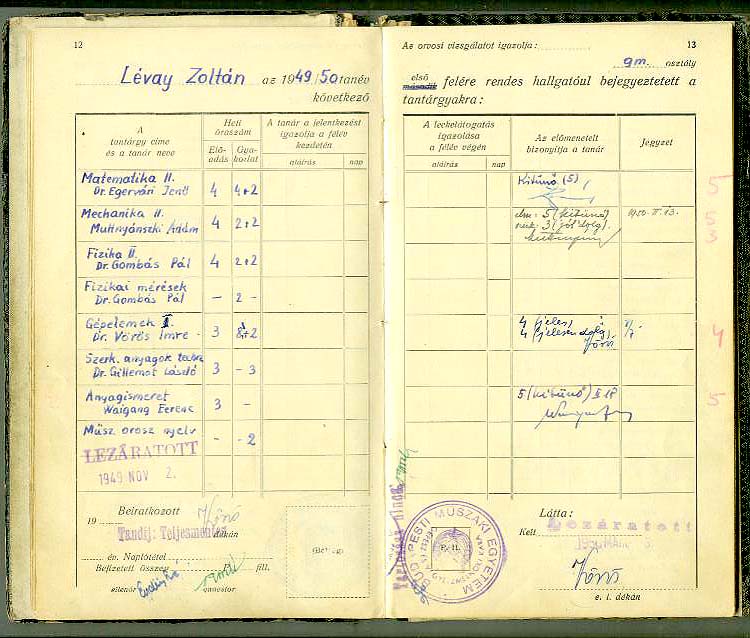 12
Lévay Zoltán az 1949/50 tanév
következő
A
tantárgy címe
és a tanár neve
Heti
óraszám
Elő-
adás
Gya-
korlat
A tanár a jelentkezést
igazolja a félév
kezdetén
aláírás
nap
Matematika II.
Dr. Egervári Jenő 4 4+2
Mechanika II.
Muttnyánszki Ádám 4 2+2
Fizika II.
Dr. Gombás Pál 4 2+2
Fizikai mérések
Dr. Gombás Pál - 2 -
Gépelemek I.
Dr. Vörös Imre 3 +2
Szerk. anyagok
Dr. Gillemot László 3 - 3
Anyagismeret
Waigang Ferenc 3 -
Műsz. orosz nyelv - - 2
LEZÁRATOTT
1949 NOV 2.
Beiratkozott
19
Tandíj: Teljesmentes
dékán
év. Naplótétel
Befizetett összeg fill.
ellenőr quaestor
(Bélyeg)
Az orvosi vizsgálatot igazolja: 13
gm. osztály
első
második felére rendes hallgatóul bejegyeztetett a
tantárgyakra:
A leckelátogatás
igazolása
a félév végén
aláírás
nap
Az előmenetelt
bizonyítja a tanár
Jegyzet
Kitűnő (5) 5
5 (kitűnő) 1950. II. 13. 5
3 (jól dolg.) 3
4 (jeles)
4 (jelesen dolg.) 4
5 (kitűnő) 5
BUDAPESTI MŰSZAKI EGYETEM
Látta:
Kelt
Lezáratott
e. i. dékán